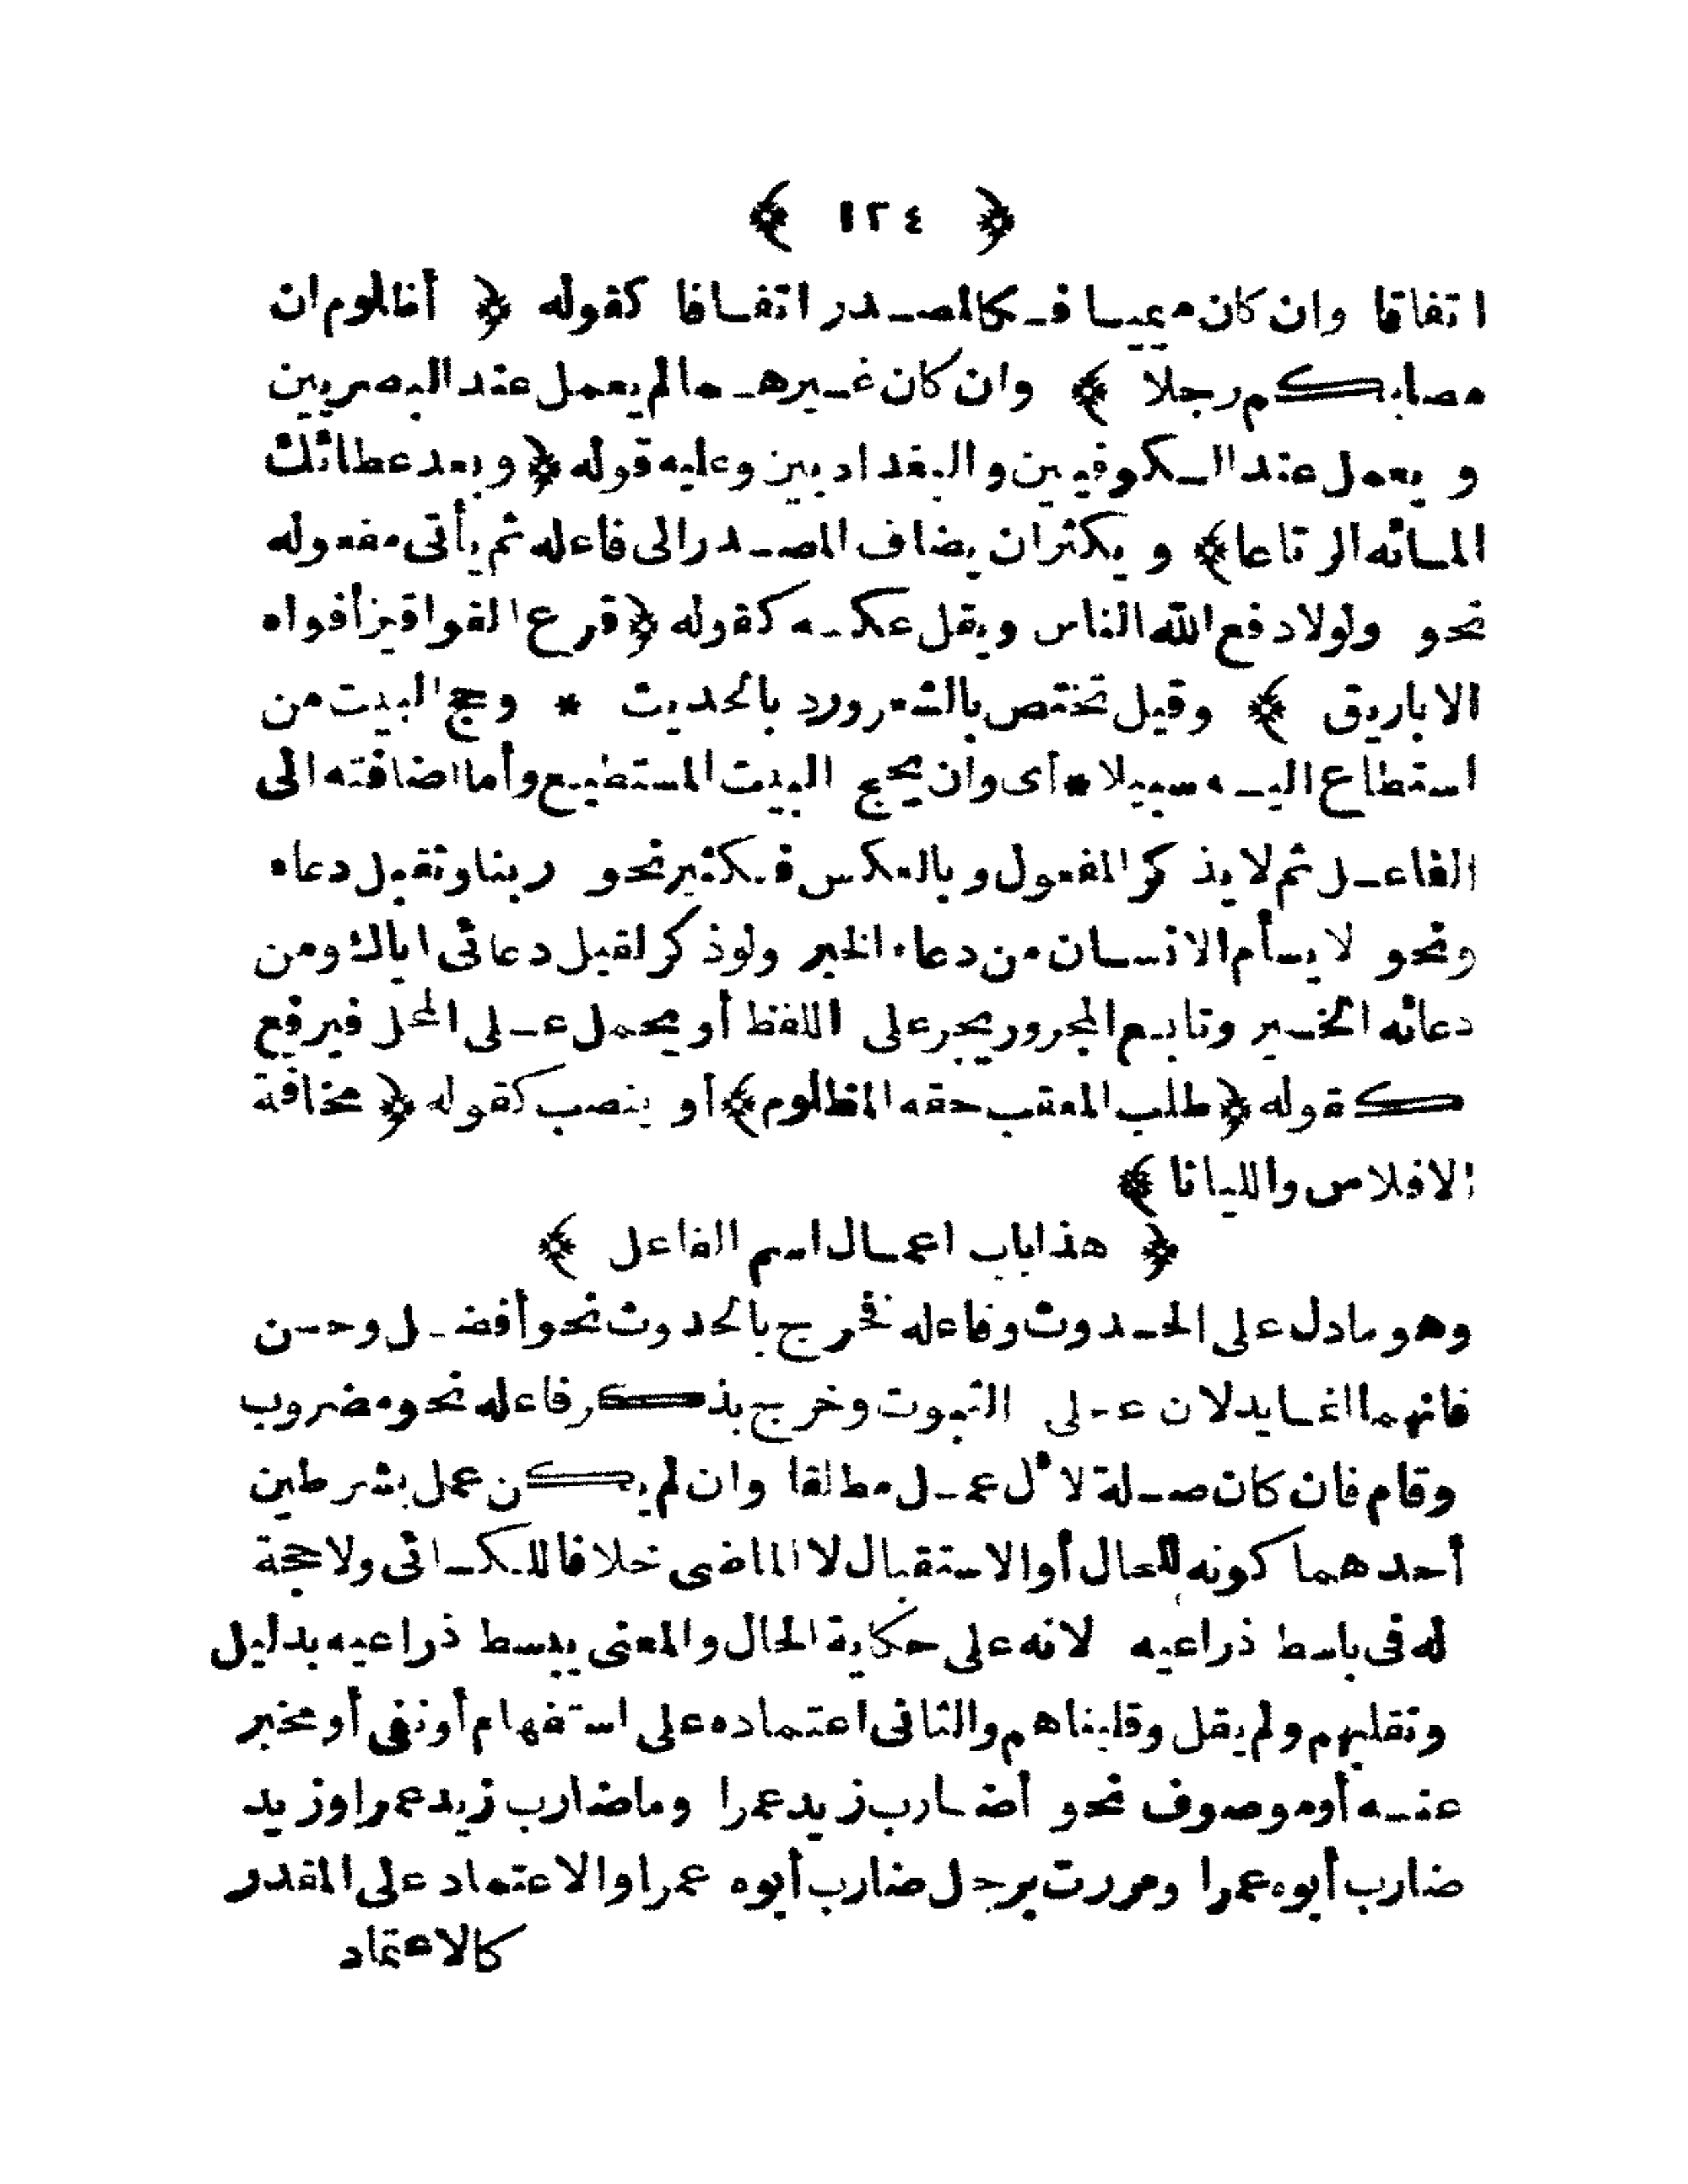 ﴿ ١٢٤ ﴾
اتفاقا وان كان ميميا فكالمصدر اتفاقا كقوله ﴿ أظلوم ان
مصابكم رجلا ﴾ وان كان غيرهما لم يعمل عند البصريين
ويعمل عند الكوفيين والبغداديين وعليه قوله ﴿ وبعد عطائك
المائه الرتاعا ﴾ ويكثر ان يضاف المصدر الى فاعله ثم يأتى مفعوله
نحو ولولا دفع الله الناس ويقل عكسه كقوله ﴿ قرع القواقيز أفواه
الاباريق ﴾ وقيل تختص بالشعر ورد بالحديث * وحج البيت من
استطاع اليه سبيلا * أى وان يحج البيت المستطيع وأما اضافته الى
الفاعل ثم لا يذكر المفعول وبالعكس فكثير نحو ربنا وتقبل دعاء
ونحو لا يسأم الانسان من دعاء الخير ولو ذكر لقيل دعائى اياك ومن
دعائه الخير وتابع المجرور يجر على اللفظ أو يحمل على المحل فيرفع
كقوله ﴿ طلب المعقب حقه المظلوم ﴾ أو ينصب كقوله ﴿ مخافة
الافلاس والليانا ﴾
﴿ هذا باب اعمال اسم الفاعل ﴾
وهو ما دل على الحدوث وفاعله فخرج بالحدوث نحو أفضل وحسن
فانهما انما يدلان على الثبوت وخرج بذكر فاعله نحو مضروب
وقام فان كان صلة لأل عمل مطلقا وان لم يكن عمل بشرطين
أحدهما كونه للحال أو الاستقبال لا الماضى خلافا للكسائى ولا حجة
له فى باسط ذراعيه لانه على حكاية الحال والمعنى يبسط ذراعيه بدليل
ونقلبهم ولم يقل وقلبناهم والثانى اعتماده على استفهام أو نفى أو مخبر
عنه أو موصوف نحو أضارب زيد عمرا وما ضارب زيد عمرا وزيد
ضارب أبوه عمرا ومررت برجل ضارب أبوه عمرا والاعتماد على المقدر
كالاعتماد